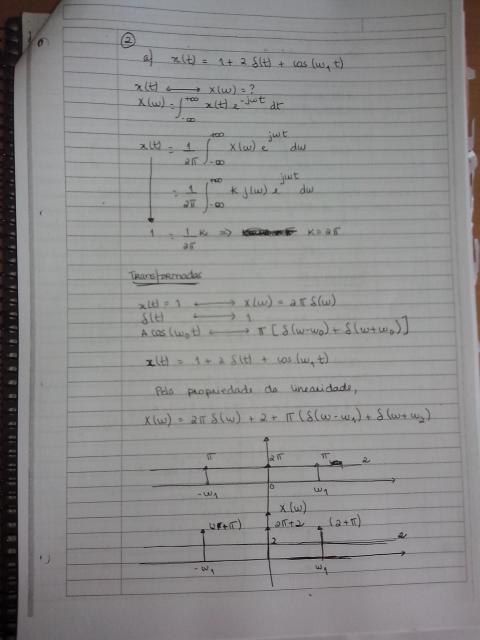 ②
a) x(t) = 1 + 2 δ(t) + cos(w₁t)
x(t) ⟷ X(w) = ?
X(w) = ∫_{-∞}^{+∞} x(t) e^{-jwt} dt
x(t) = 1/2π ∫_{-∞}^{+∞} X(w) e^{jwt} dw
= 1/2π ∫_{-∞}^{+∞} K δ(w) e^{jwt} dw
1 = 1/2π K ⇒ K = 2π
Transformadas
x(t) = 1 ⟷ X(w) = 2π δ(w)
δ(t) ⟷ 1
A cos(w₀t) ⟷ π [δ(w-w₀) + δ(w+w₀)]
x(t) = 1 + 2 δ(t) + cos(w₁t)
Pela propriedade da linearidade,
X(w) = 2π δ(w) + 2 + π (δ(w-w₁) + δ(w+w₂)
π 2π π 2
-w₁ 0 w₁
X(w)
2π+2 (2+π)
2 2
-w₁ w₁